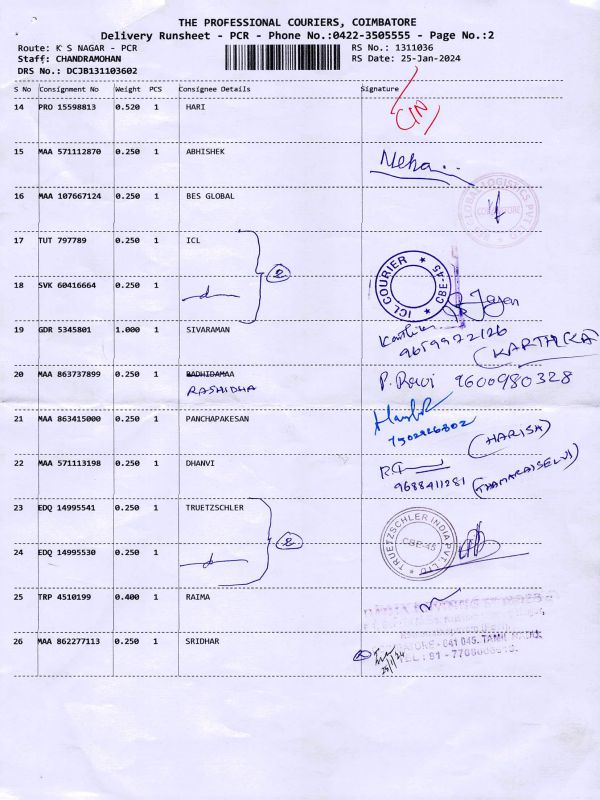 THE PROFESSIONAL COURIERS, COIMBATORE
Delivery Runsheet - PCR - Phone No.:0422-3505555 - Page No.:2
Route: K S NAGAR - PCR
RS No.: 1311036
Staff: CHANDRAMOHAN
RS Date: 25-Jan-2024
DRS No.: DCJB131103602
S No Consignment No Weight PCS Consignee Details Signature
14 PRO 15598813 0.520 1 HARI
15 MAA 571112870 0.250 1 ABHISHEK Neha
16 MAA 107667124 0.250 1 BES GLOBAL
17 TUT 797789 0.250 1 ICL
ICL COURIER CBE-45
18 SVK 60416664 0.250 1
19 GDR 5345801 1.000 1 SIVARAMAN
9659922126
(KARTHIKA
20 MAA 863737899 0.250 1 P. Ravi 9600980328
RASHIDHA
21 MAA 863415000 0.250 1 PANCHAPAKESAN
7502926802 (HARISH)
22 MAA 571113198 0.250 1 DHANVI
9688411281 (THAMARAISELVI)
23 EDQ 14995541 0.250 1 TRUETZSCHLER
TRUETZSCHLER INDIA PVT LTD CBE-45
24 EDQ 14995530 0.250 1
25 TRP 4510199 0.400 1 RAIMA
26 MAA 862277113 0.250 1 SRIDHAR